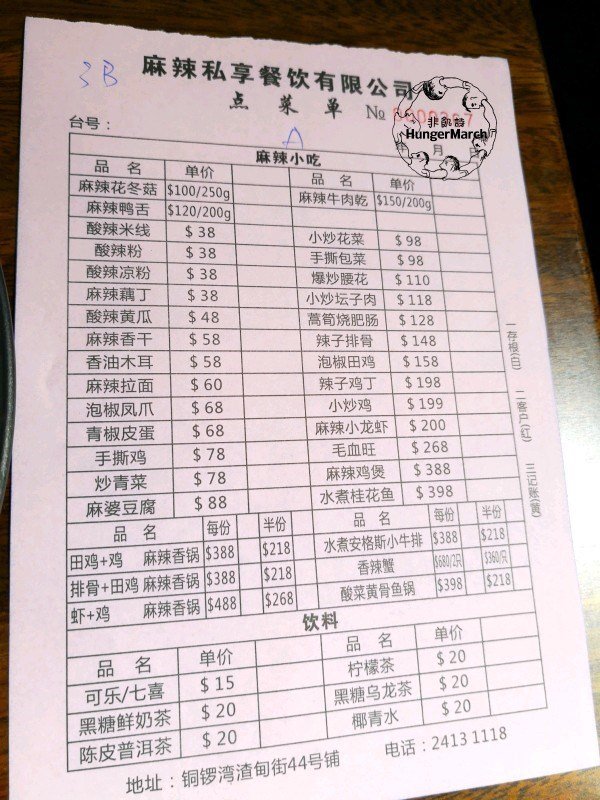 3B
麻辣私享餐饮有限公司
点菜单 №
非飢昔
HungerMarch
台号： A 月
麻辣小吃
品 名 单价 品 名 单价
麻辣花冬菇 $100/250g 麻辣牛肉乾 $150/200g
麻辣鸭舌 $120/200g
酸辣米线 $38 小炒花菜 $98
酸辣粉 $38 手撕包菜 $98
酸辣凉粉 $38 爆炒腰花 $110
麻辣藕丁 $38 小炒坛子肉 $118
酸辣黄瓜 $48 蒿筍烧肥肠 $128
麻辣香干 $58 辣子排骨 $148
香油木耳 $58 泡椒田鸡 $158
麻辣拉面 $60 辣子鸡丁 $198
泡椒凤爪 $68 小炒鸡 $199
青椒皮蛋 $68 麻辣小龙虾 $200
手撕鸡 $78 毛血旺 $268
炒青菜 $78 麻辣鸡煲 $388
麻婆豆腐 $88 水煮桂花鱼 $398
品 名 每份 半份 品 名 每份 半份
田鸡+鸡 麻辣香锅 $388 $218 水煮安格斯小牛排 $388 $218
排骨+田鸡 麻辣香锅 $388 $218 香辣蟹 $680/2只 $360/只
虾+鸡 麻辣香锅 $488 $268 酸菜黄骨鱼锅 $398 $218
饮料
品 名 单价 品 名 单价
可乐/七喜 $15 柠檬茶 $20
黑糖鲜奶茶 $20 黑糖乌龙茶 $20
陈皮普洱茶 $20 椰青水 $20
地址：铜锣湾渣甸街44号铺 电话：2413 1118
一存根(白) 二客户(红) 三记账(黄)